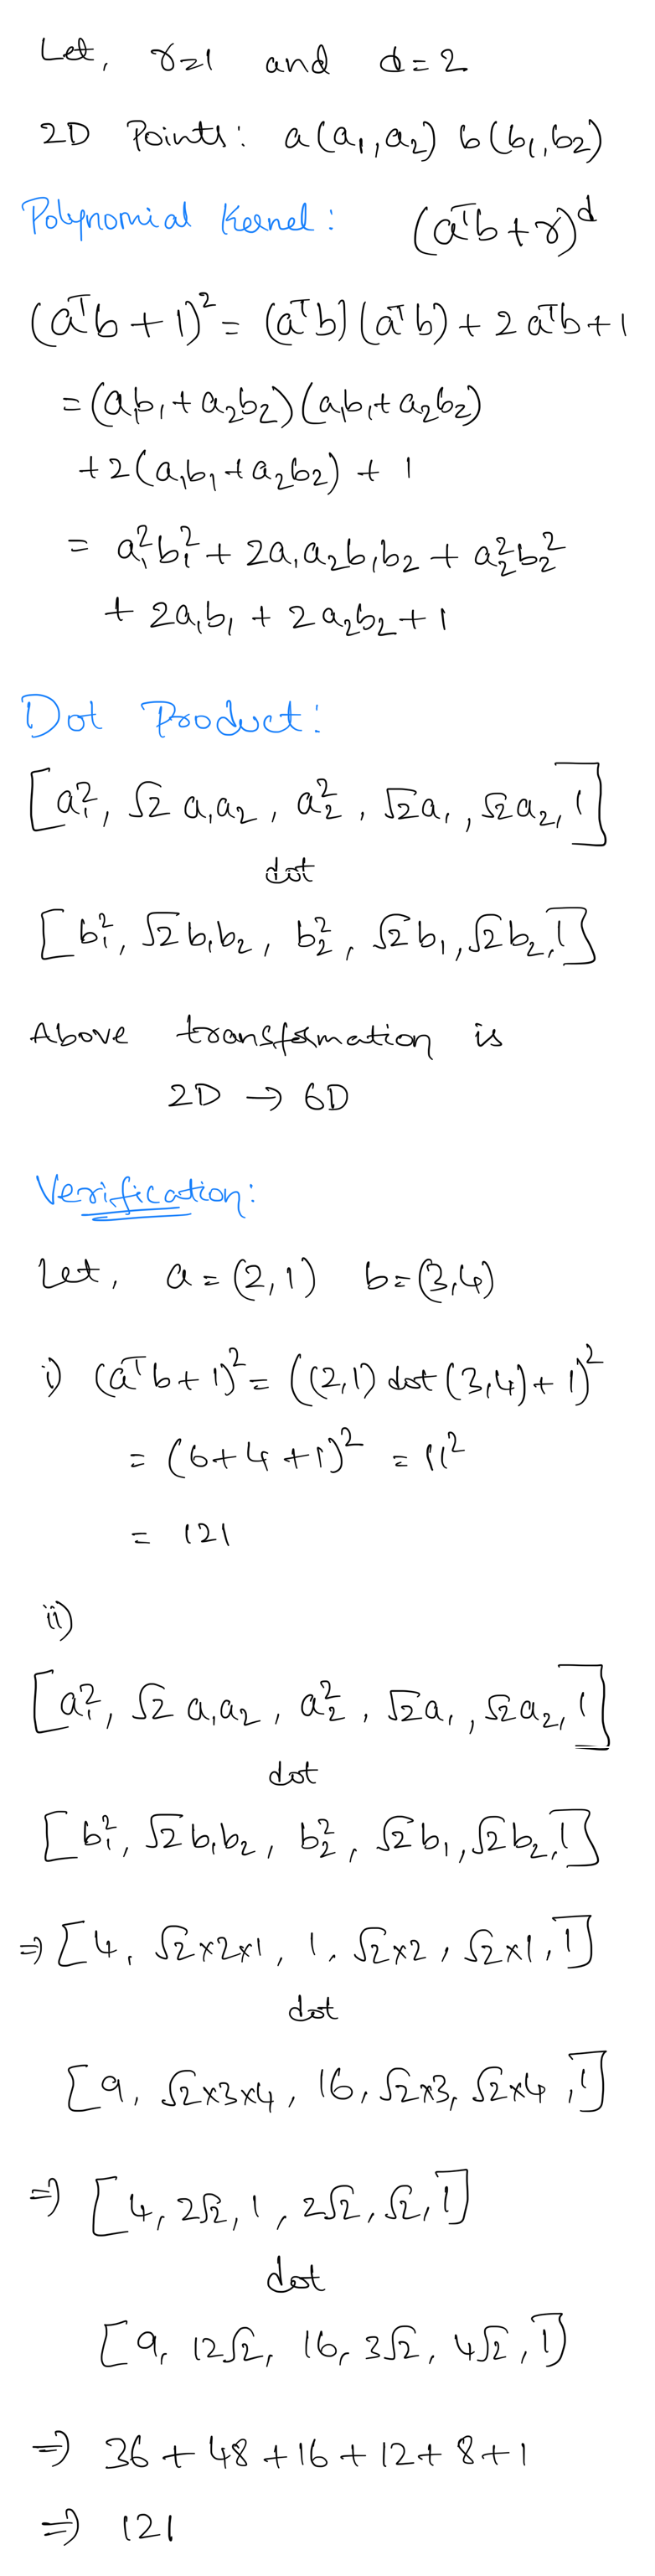 Let, r=1 and d=2
2D Points: a(a₁,a₂) b(b₁,b₂)
Polynomial Kernel: (aᵀb+r)ᵈ
(aᵀb+1)² = (aᵀb)(aᵀb) + 2aᵀb+1
=(a₁b₁+a₂b₂)(a₁b₁+a₂b₂)
+2(a₁b₁+a₂b₂) + 1
= a₁²b₁² + 2a₁a₂b₁b₂ + a₂²b₂²
+ 2a₁b₁ + 2a₂b₂+1
Dot Product:
[a₁², √2 a₁a₂, a₂², √2a₁, √2a₂, 1]
dot
[b₁², √2b₁b₂, b₂², √2b₁, √2b₂, 1]
Above transformation is
2D → 6D
Verification:
Let, a=(2,1) b=(3,4)
i) (aᵀb+1)² = ((2,1) dot (3,4)+1)²
= (6+4+1)² = 11²
= 121
ii)
[a₁², √2 a₁a₂, a₂², √2a₁, √2a₂, 1]
dot
[b₁², √2b₁b₂, b₂², √2b₁, √2b₂, 1]
⇒ [4, √2×2×1, 1, √2×2, √2×1, 1]
dot
[9, √2×3×4, 16, √2×3, √2×4, 1]
⇒ [4, 2√2, 1, 2√2, √2, 1]
dot
[9, 12√2, 16, 3√2, 4√2, 1]
⇒ 36+48+16+12+8+1
⇒ 121